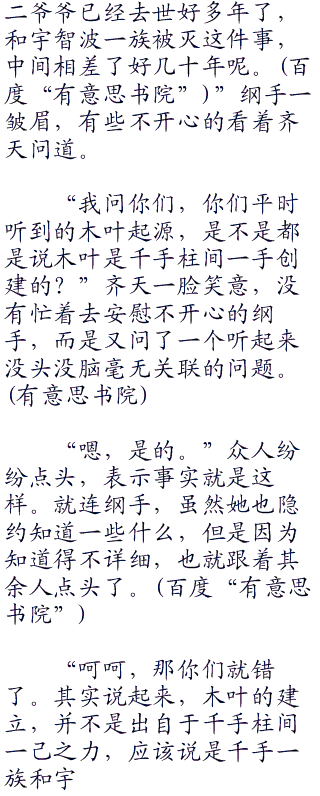 二爷爷已经去世好多年了，
和宇智波一族被灭这件事，
中间相差了好几十年呢。(百
度“有意思书院”)”纲手一
皱眉，有些不开心的看着齐
天问道。
“我问你们，你们平时
听到的木叶起源，是不是都
是说木叶是千手柱间一手创
建的？”齐天一脸笑意，没
有忙着去安慰不开心的纲
手，而是又问了一个听起来
没头没脑毫无关联的问题。
(有意思书院)
“嗯，是的。”众人纷
纷点头，表示事实就是这
样。就连纲手，虽然她也隐
约知道一些什么，但是因为
知道得不详细，也就跟着其
余人点头了。(百度“有意思
书院”)
“呵呵，那你们就错
了。其实说起来，木叶的建
立，并不是出自于千手柱间
一己之力，应该说是千手一
族和宇